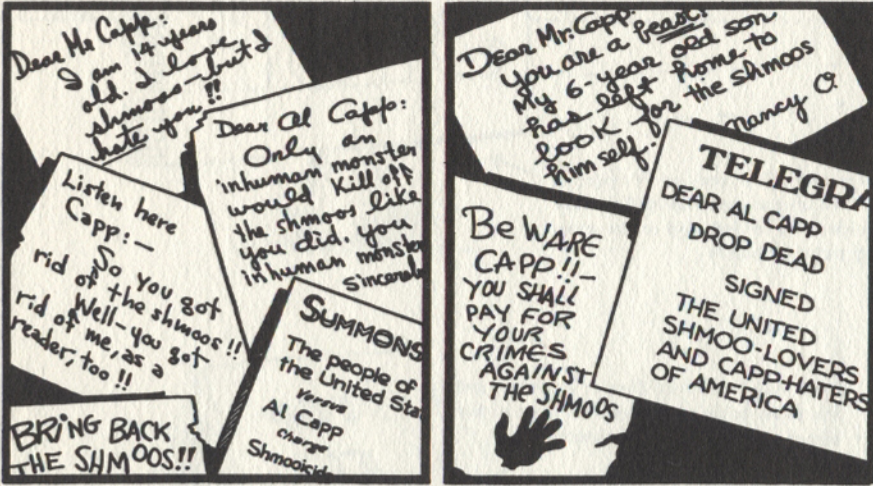 Dear Mr Capp:
I am 14 years
old. I love
shmoos—but I
hate you!!
Dear Al Capp:
Only an
inhuman monster
would kill off
the shmoos like
you did, you
inhuman monster
Sincerely
Listen here
Capp:—
So you got
rid of the shmoos!!
Well—you got
rid of me, as a
reader, too!!
SUMMONS
The people of
the United Sta
Versus
Al Capp
Charge
Shmooicide
BRING BACK
THE SHMOOS!!
Dear Mr. Capp:
You are a beast!
My 6-year old son
has left home to
look for the shmoos
himself.
Nancy O.
BEWARE
CAPP!!—
YOU SHALL
PAY FOR
YOUR
CRIMES
AGAINST
THE SHMOOS
TELEGRA
DEAR AL CAPP
DROP DEAD
SIGNED
THE UNITED
SHMOO-LOVERS
AND CAPP-HATERS
OF AMERICA